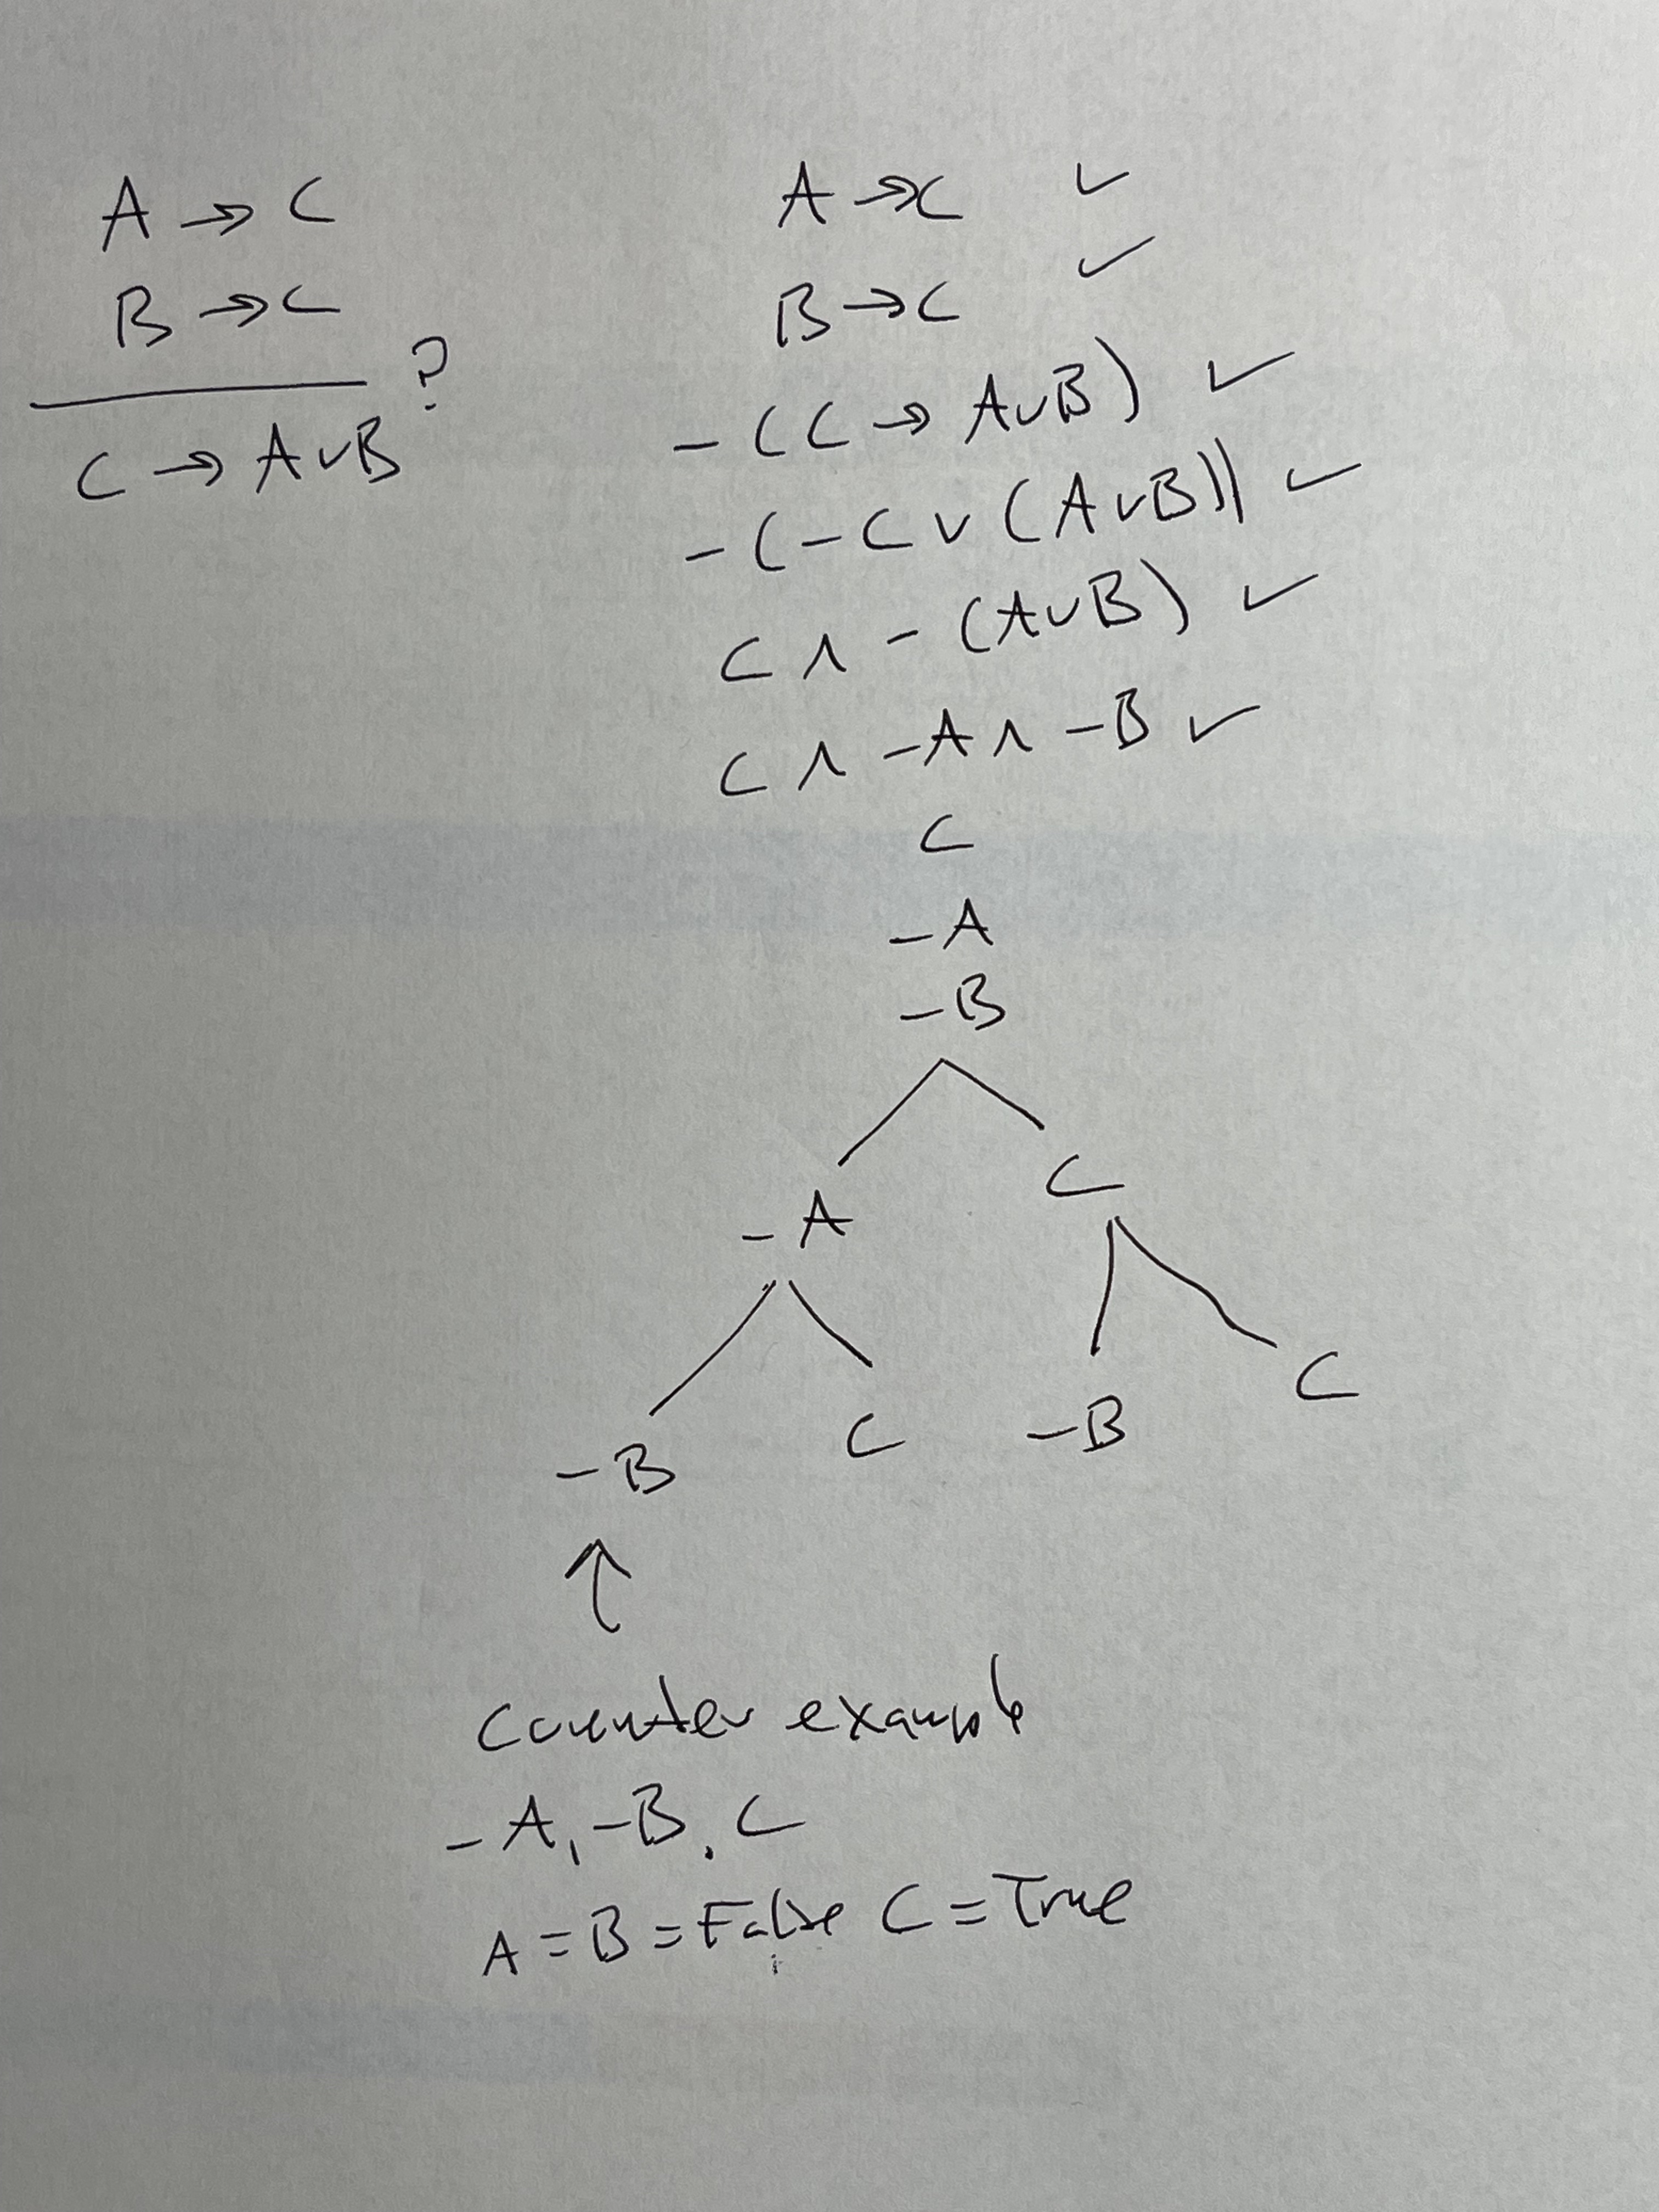 A → C
B → C
?
C → A∨B
A → C ✓
B → C ✓
-(C → A∨B) ✓
-(-C ∨ (A∨B)) ✓
C ∧ -(A∨B) ✓
C ∧ -A ∧ -B ✓
C
-A
-B
-A C
-B C -B C
↑
Counter example
-A, -B, C
A = B = False C = True